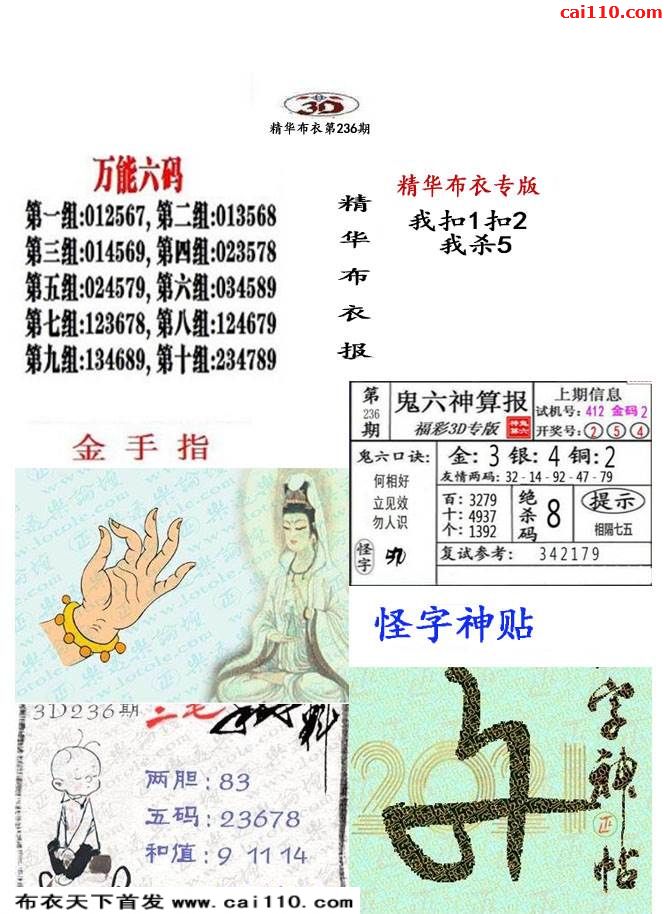 cai110.com
3D
精华布衣第236期
万能六码
第一组:012567, 第二组:013568
第三组:014569, 第四组:023578
第五组:024579, 第六组:034589
第七组:123678, 第八组:124679
第九组:134689, 第十组:234789
精华布衣报
精华布衣专版
我扣1扣2
我杀5
金手指
第236期
鬼六神算报
福彩3D专版
上期信息
试机号: 412 金码2
开奖号: 2 5 4
鬼六口诀:
何相好
立见效
勿人识
怪字
金: 3 银: 4 铜: 2
友情两码: 32-14-92-47-79
百: 3279
十: 4937
个: 1392
绝杀码 8
提示
相隔七五
复试参考: 342179
怪字神贴
3D236期
两胆: 83
五码: 23678
和值: 9 11 14
2021
字神帖
正
布衣天下首发 www.cai110.com